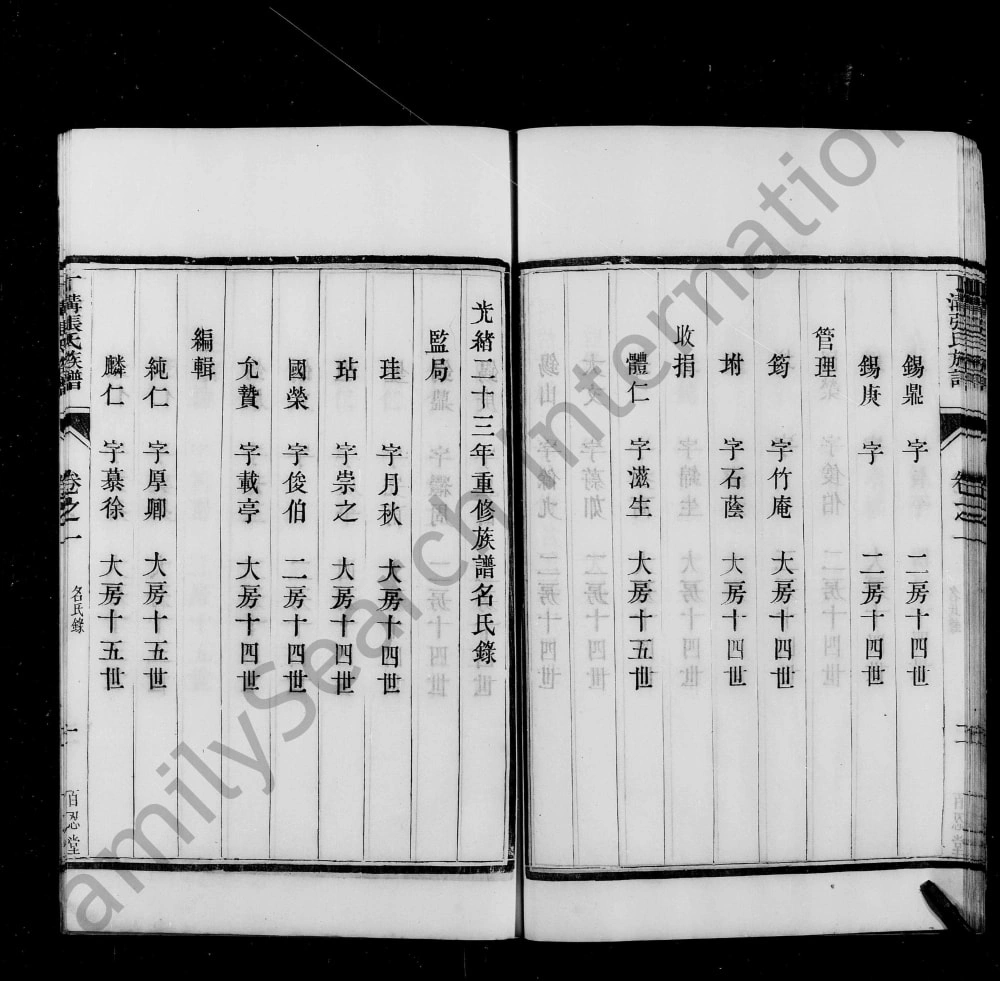 錫鼎　字　二房十四世
錫庚　字　二房十四世
管理
筠　字竹庵　大房十四世
坿　字石蔭　大房十四世
收捐
體仁　字滋生　大房十五世
光緒二十三年重修族譜名氏錄
監局
珪　字月秋　大房十四世
玷　字崇之　大房十四世
國榮　字俊伯　二房十四世
允贊　字載亭　大房十四世
編輯
純仁　字厚卿　大房十五世
麟仁　字慕徐　大房十五世
溝張氏族譜　卷之一　名氏錄　一　百忍堂
FamilySearch International